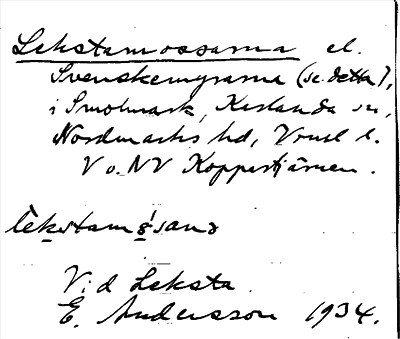 Lekstamossarna el.
Svenskemyrarna (se detta),
i Smolmark, Karlanda sn,
Nordmarks hd, Vrml l.
V o. NV Koppertjärnen.
lekstamọs̀sanə
Vid Leksta.
E. Andersson 1934.